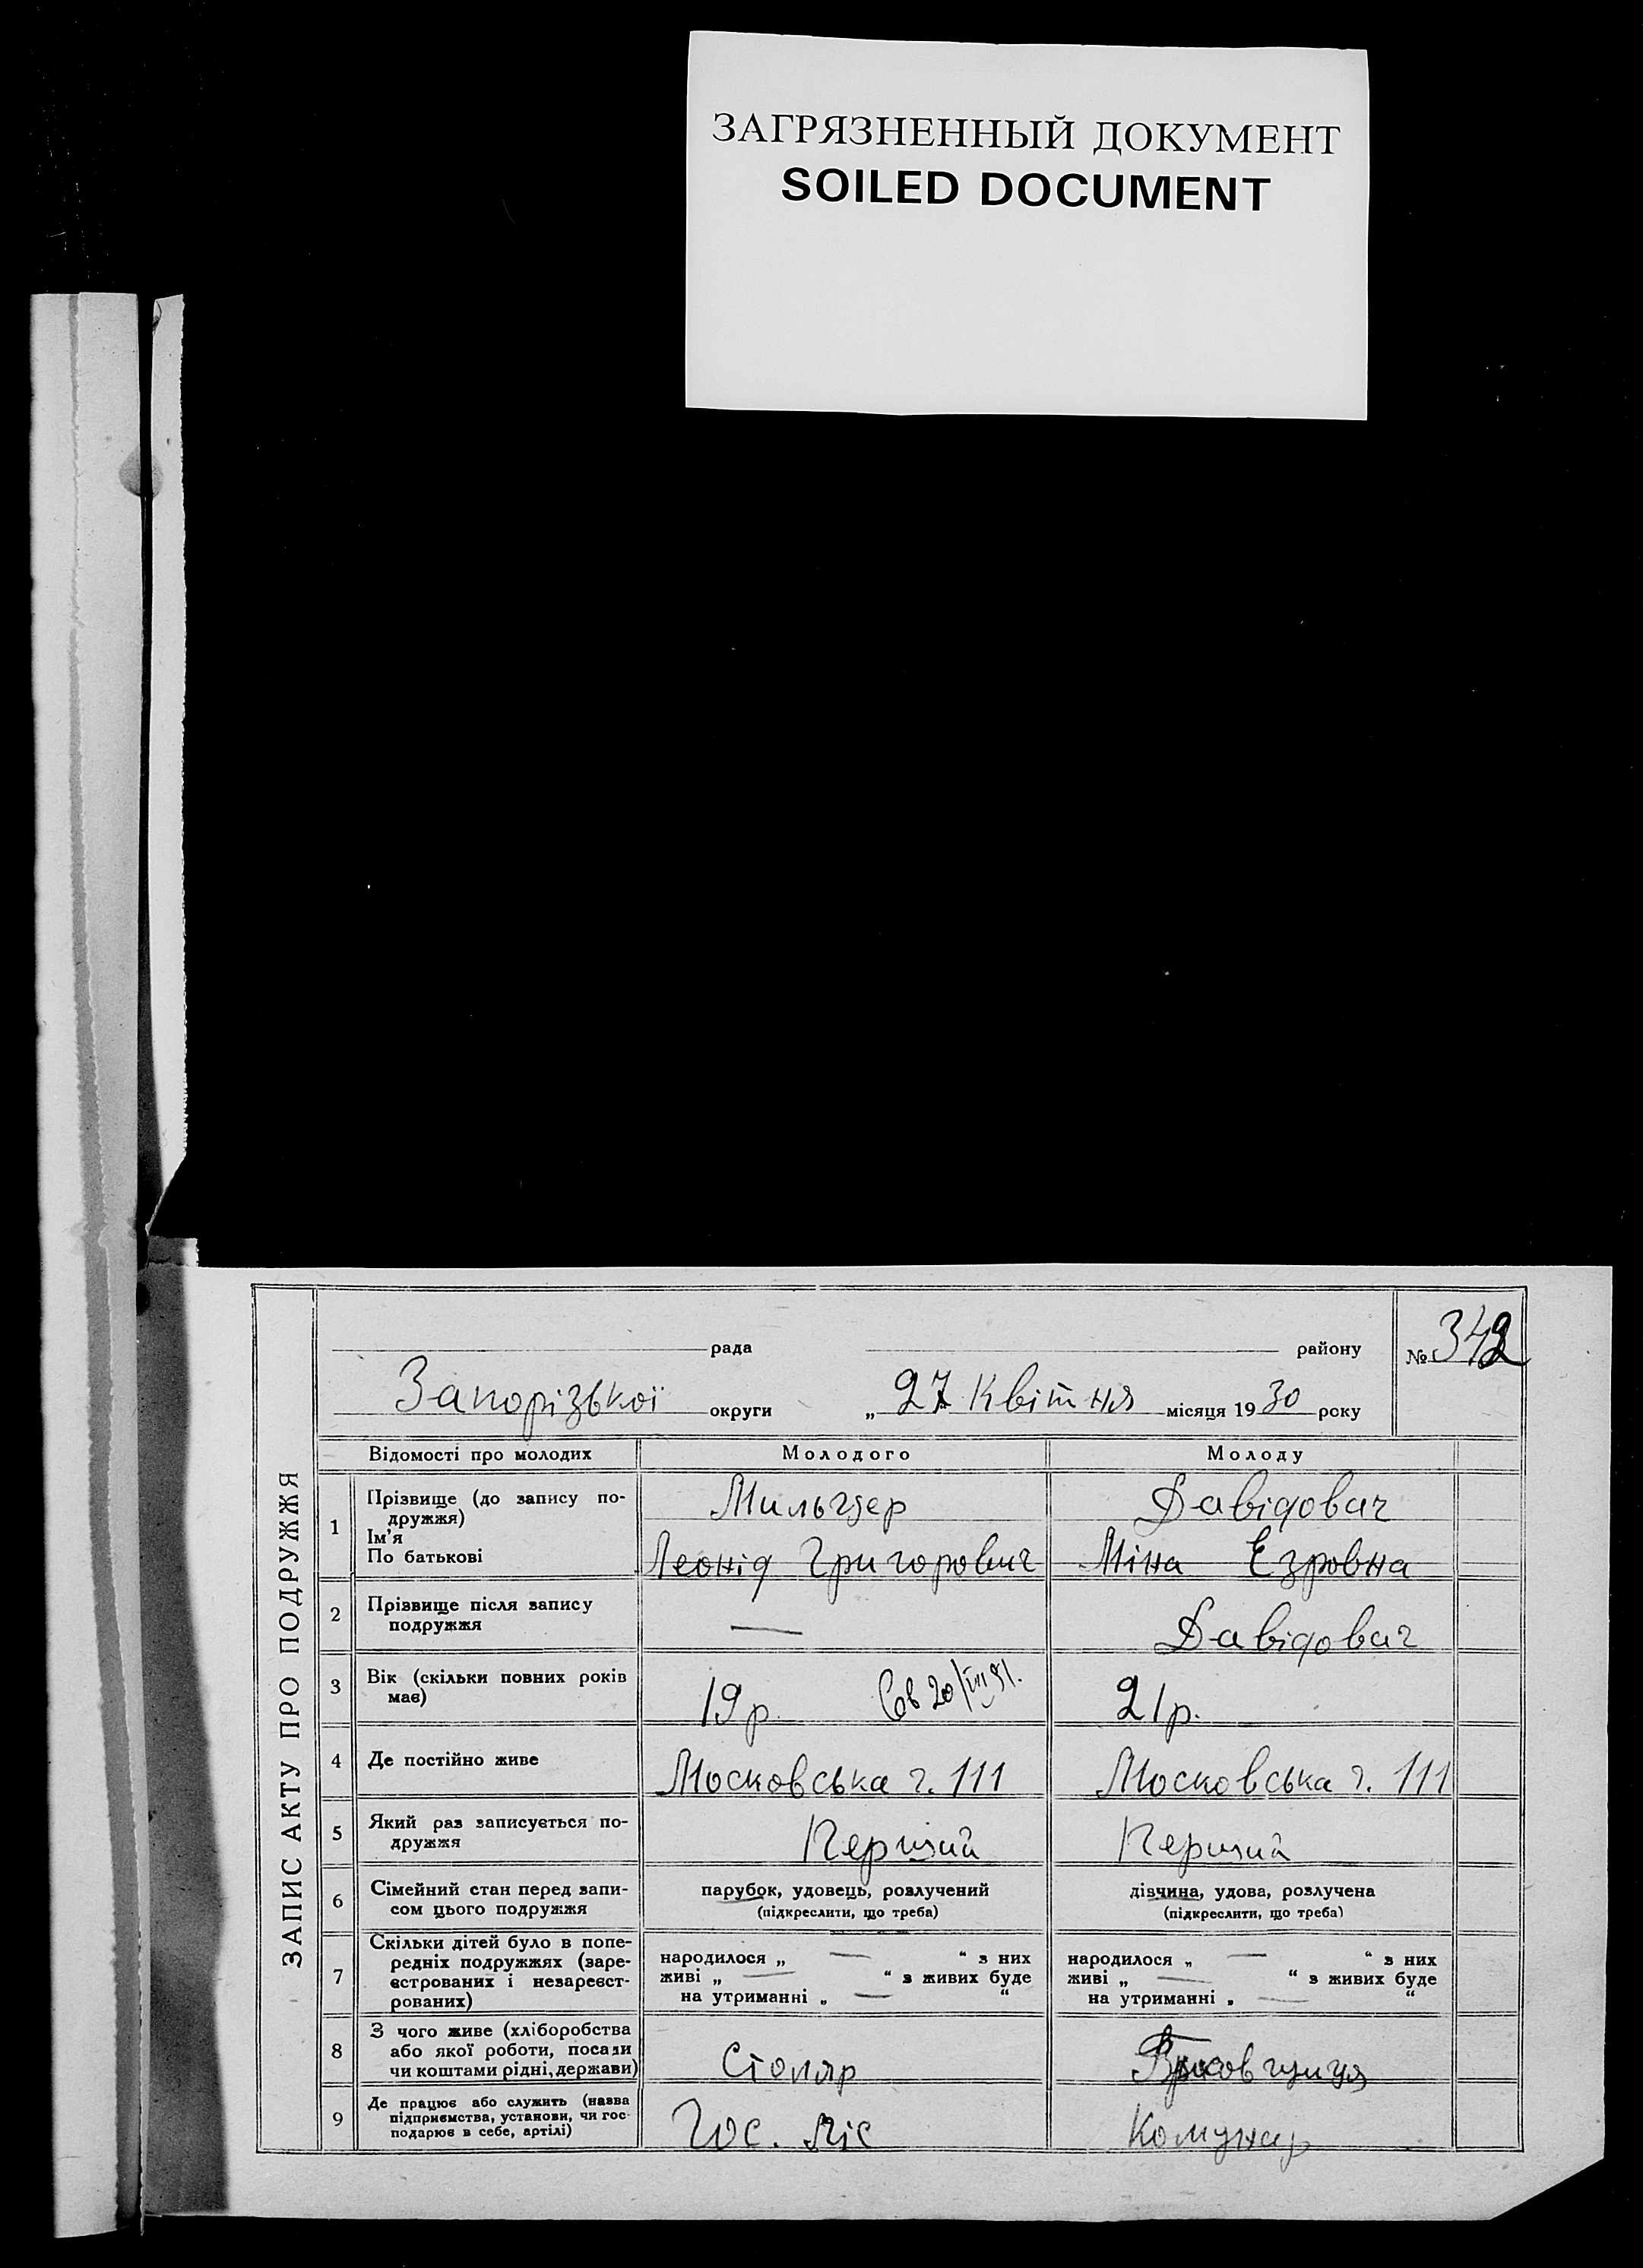 ЗАГРЯЗНЕННЫЙ ДОКУМЕНТ
SOILED DOCUMENT
ЗАПИС АКТУ ПРО ПОДРУЖЖЯ
рада району № 342
Запорізької округи „ 27 Квітня місяця 1930 року
Відомості про молодих Молодого Молоду
1 Прізвище (до запису по-
дружжя) Мильгдер Давідович
Ім'я
По батькові Леонід Григорович Міна Езровна
2 Прізвище після запису
подружжя — Давідович
3 Вік (скільки повних років
має) 19 р. Св 20/VIII 31. 21 р.
4 Де постійно живе Московська ч. 111 Московська ч. 111
5 Який раз записується по-
дружжя Перший Перший
6 Сімейний стан перед запи-
сом цього подружжя
парубок, удовець, розлучений дівчина, удова, розлучена
(підкреслити, що треба) (підкреслити, що треба)
7 Скільки дітей було в попе-
редніх подружжях (заре-
єстрованих і незареєст-
рованих)
народилося „ — “ з них народилося „ — “ з них
живі „ — “ з живих буде живі „ — “ з живих буде
на утриманні „ — “ на утриманні „ — “
8 З чого живе (хліборобства
або якої роботи, посади
чи коштами рідні, держави) Столяр
9 Де працює або служить (назва
підприємства, установи, чи гос-
подарює в себе, артілі) Гос. ліс Комунар